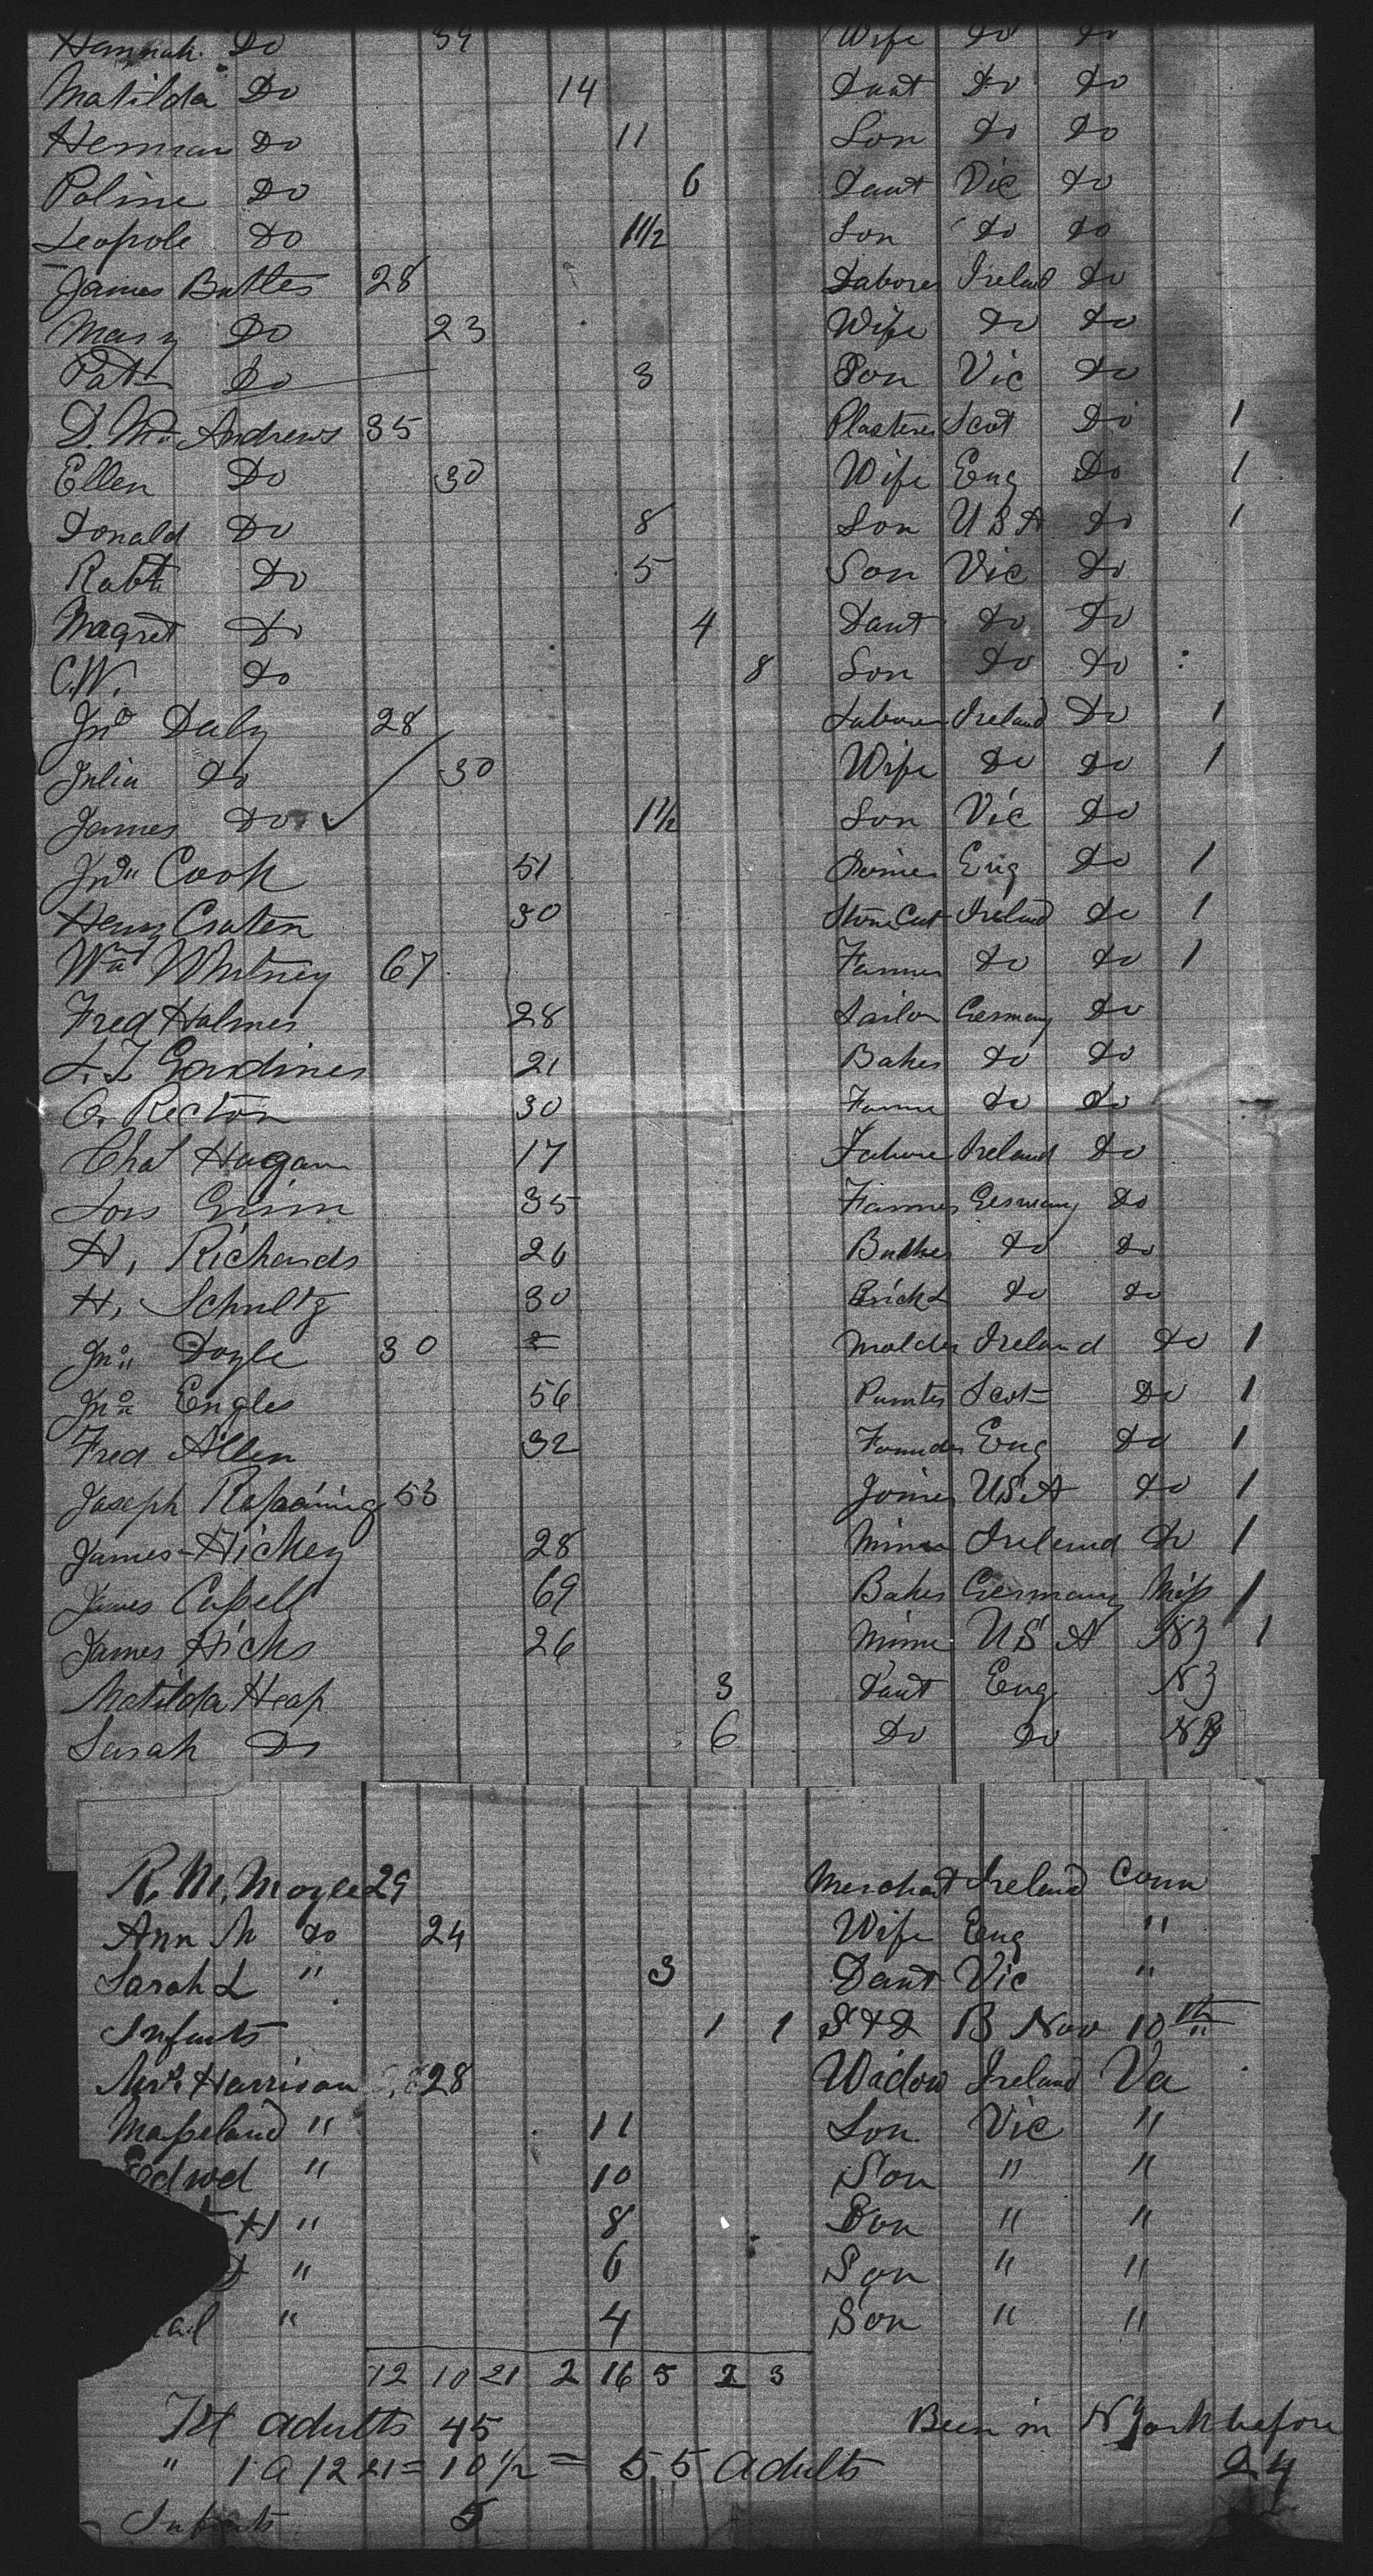 Hannah. Do 39 Wife do do
Matilda Do 14 Daut Do do
Herman Do 11 Son do do
Poline Do 6 Daut Vic do
Leopole Do 1 1/2 Son do do
James Buttes 28 Labores Ireland Do
Mary Do 23 Wife do do
Patk Do 3 Son Vic do
D. Mc Andrews 35 Plasterer Scot Do 1
Ellen Do 30 Wife Eng Do 1
Donald Do 8 Son USA do 1
Robt Do 5 Son Vic Do
Magret Do 4 Daut do Do
C.W. Do 8 Son Do do
Jno Daly 28 Laborer Ireland Do 1
Julia do 30 Wife Do Do 1
James Do 1 1/2 Son Vic Do
Jno Cook 51 Joiner Eng Do 1
Henry Craten 30 Stone Cut Ireland do 1
Wm Whitney 67 Farmer do do 1
Fred Holmes 28 Sailor Germany Do
21 Baker do do
30 Farme do do
Chas Hagan 17 Labore Ireland Do
Grimm 35 Farmer Germany Do
H. Richards 26 Buther do do
H. Schultz 30 Brick L do do
Jno Doyle 30 Molder Ireland do 1
Jno Engles 56 Painter Scot Do 1
Fred Allen 32 Founder Eng do 1
Joseph 53 Joiner USA do 1
James Hickey 28 Miner Ireland do 1
James Capell 69 Baker Germany Miss 1
James Hicks 26 Mine USA NY 1
Matilda Heap 3 Daut Eng NY
Sarah Do 6 Do do NY
R. M. Moyle 29 Merchant Ireland Conn
Ann M do 24 Wife Eng "
Sarah L " 3 Daut Vic "
Infants 1 1 S & D B Nov 10th "
Mrs Harrison 28 Widow Ireland Va
" 11 Son Vic "
Edwd " 10 Son " "
H " 8 Son " "
" 6 Son " "
" 4 Son " "
12 10 21 2 16 5 2 3
Tot adults 45 Been in N York before
" 1 a 12 21 = 10 1/2 = 55 adults 24
Infants 5